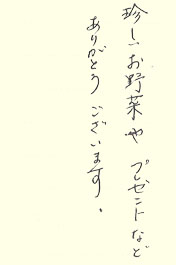 珍しいお野菜や プレゼントなど
ありがとう ございます。